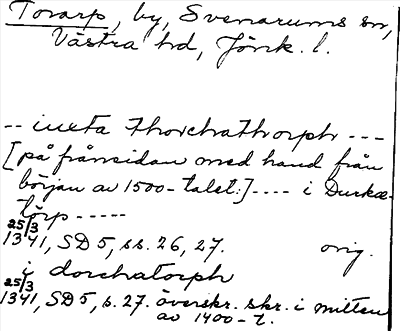 Torarp, by, Svenarums sn,
Västra hd, Jönk. l.
-- iuxta thorchathorph ---
[på framsidan med hand från
början av 1500-talet:] ---- i Durka-
törp -----
25/3
1341, SD 5, ss. 26, 27. orig.
i dorchatorph
25/3
1341, SD 5, s. 27. överskr. skr. i mitten
av 1400-t.